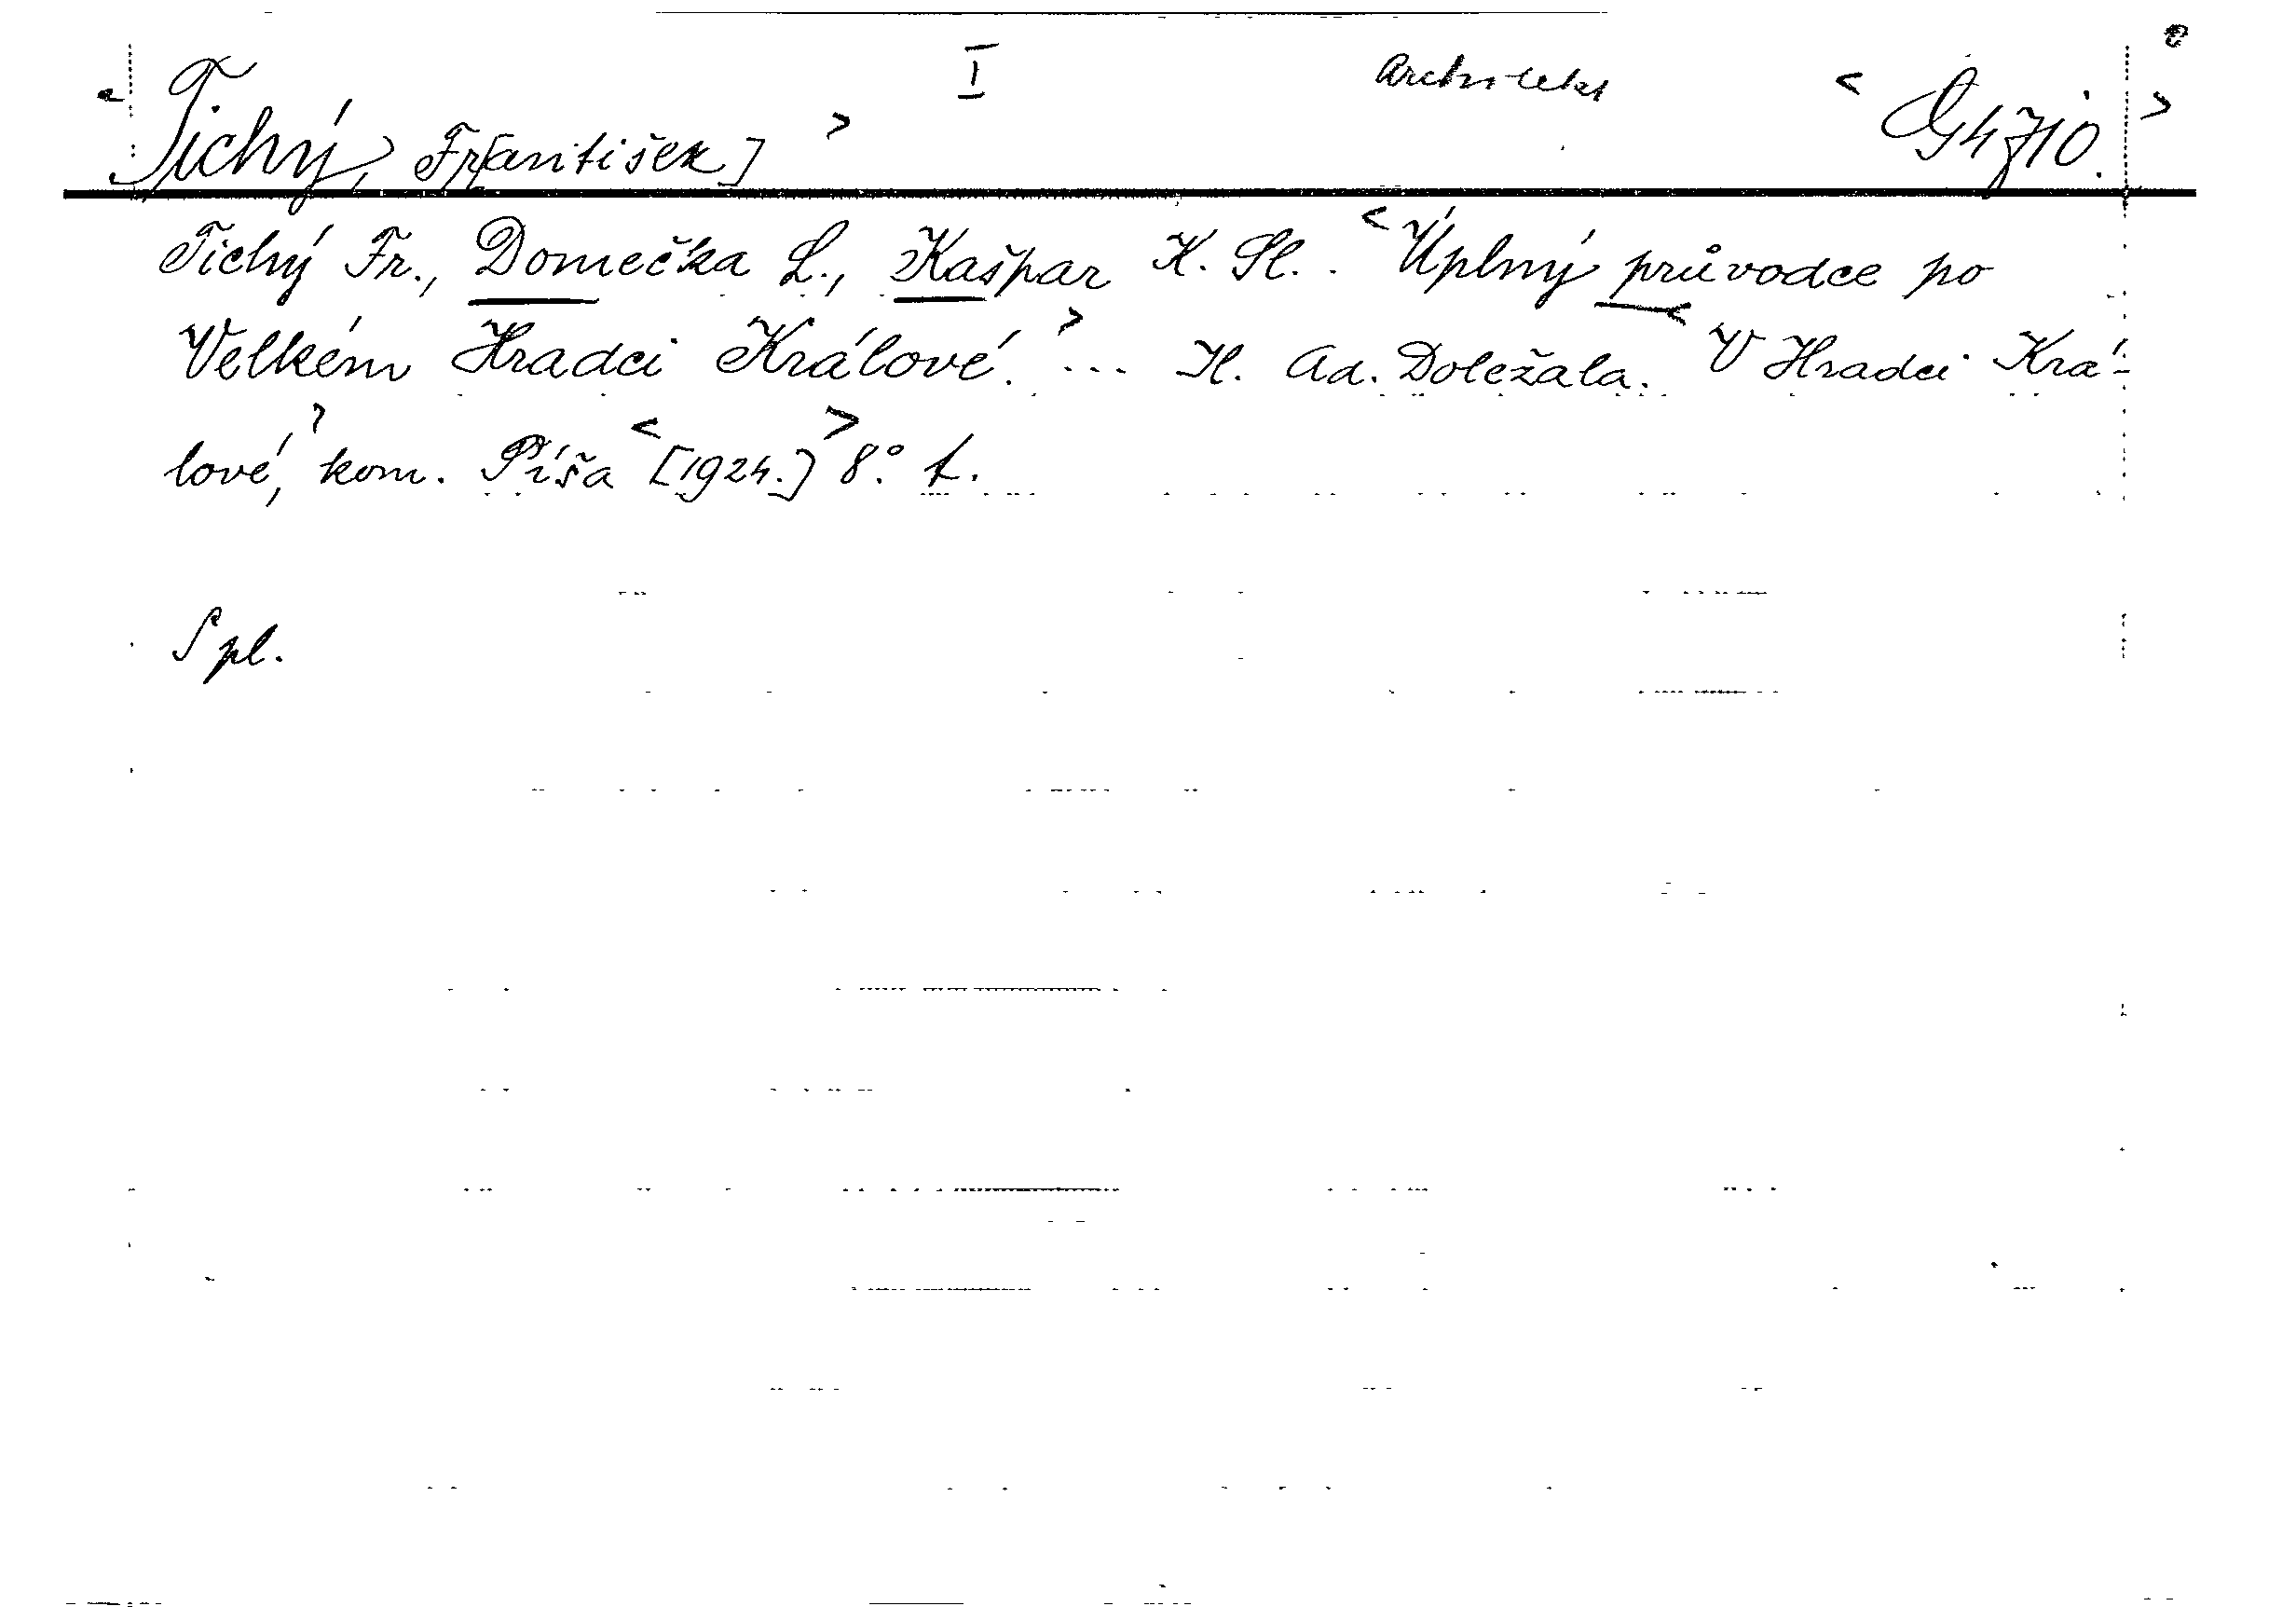 Tichý, Fr[antišek] I Architekt G 4710.
Tichý Fr., Domečka L., Kašpar K. Sl.. Úplný průvodce po
Velkém Hradci Králové. ... N. Ad. Doležala. V Hradci Krá-
lové, kom. Píša [1924.] 8°. f.
S pl.